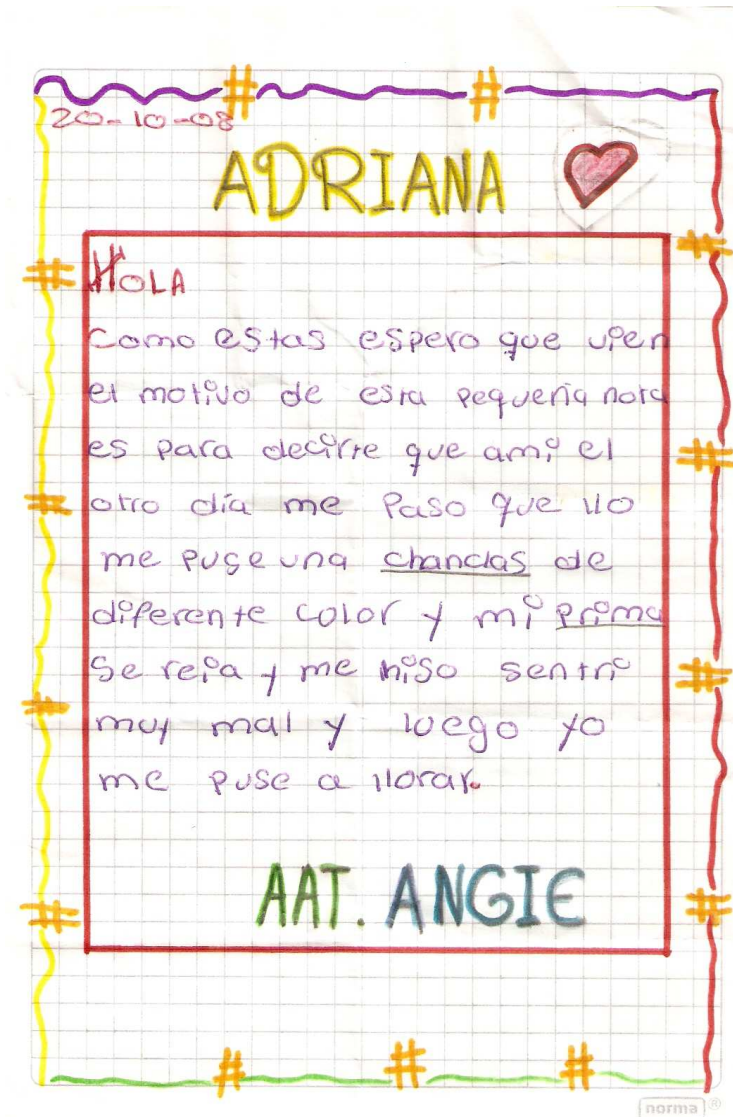 20-10-08
ADRIANA
HOLA
Como estas espero que vien
el motivo de esta pequeña nota
es para decirte que ami el
otro día me Paso que llo
me puse una chanclas de
diferente color y mi prima
Se reia y me hiso sentri
muy mal y luego yo
me puse a llorar.
AAT. ANGIE
norma®